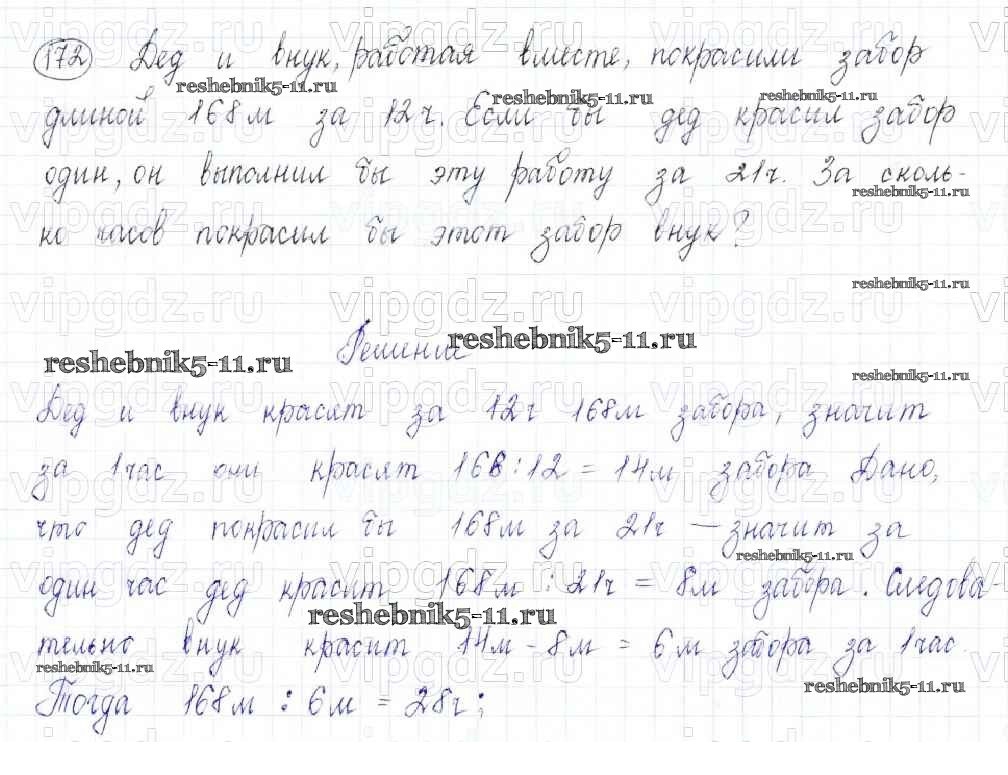 172 Дед и внук, работая вместе, покрасили забор
длиной 168 м за 12 ч. Если бы дед красил забор
один, он выполнил бы эту работу за 21 ч. За сколь-
ко часов покрасил бы этот забор внук?
Решение
Дед и внук красят за 12 ч 168 м забора, значит
за 1 час они красят 168 : 12 = 14 м забора. Дано,
что дед покрасил бы 168 м за 21 ч — значит за
один час дед красит 168 м : 21 ч = 8 м забора. Следова-
тельно внук красит 14 м - 8 м = 6 м забора за 1 час.
Тогда 168 м : 6 м = 28 ч;
reshebnik5-11.ru
vipgdz.ru